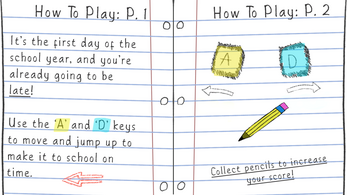 How To Play: P. 1
It's the first day of the
school year, and you're
already going to be
late!
Use the 'A' and 'D' keys
to move and jump up to
make it to school on
time.
How To Play: P. 2
A
D
Collect pencils to increase
your score!